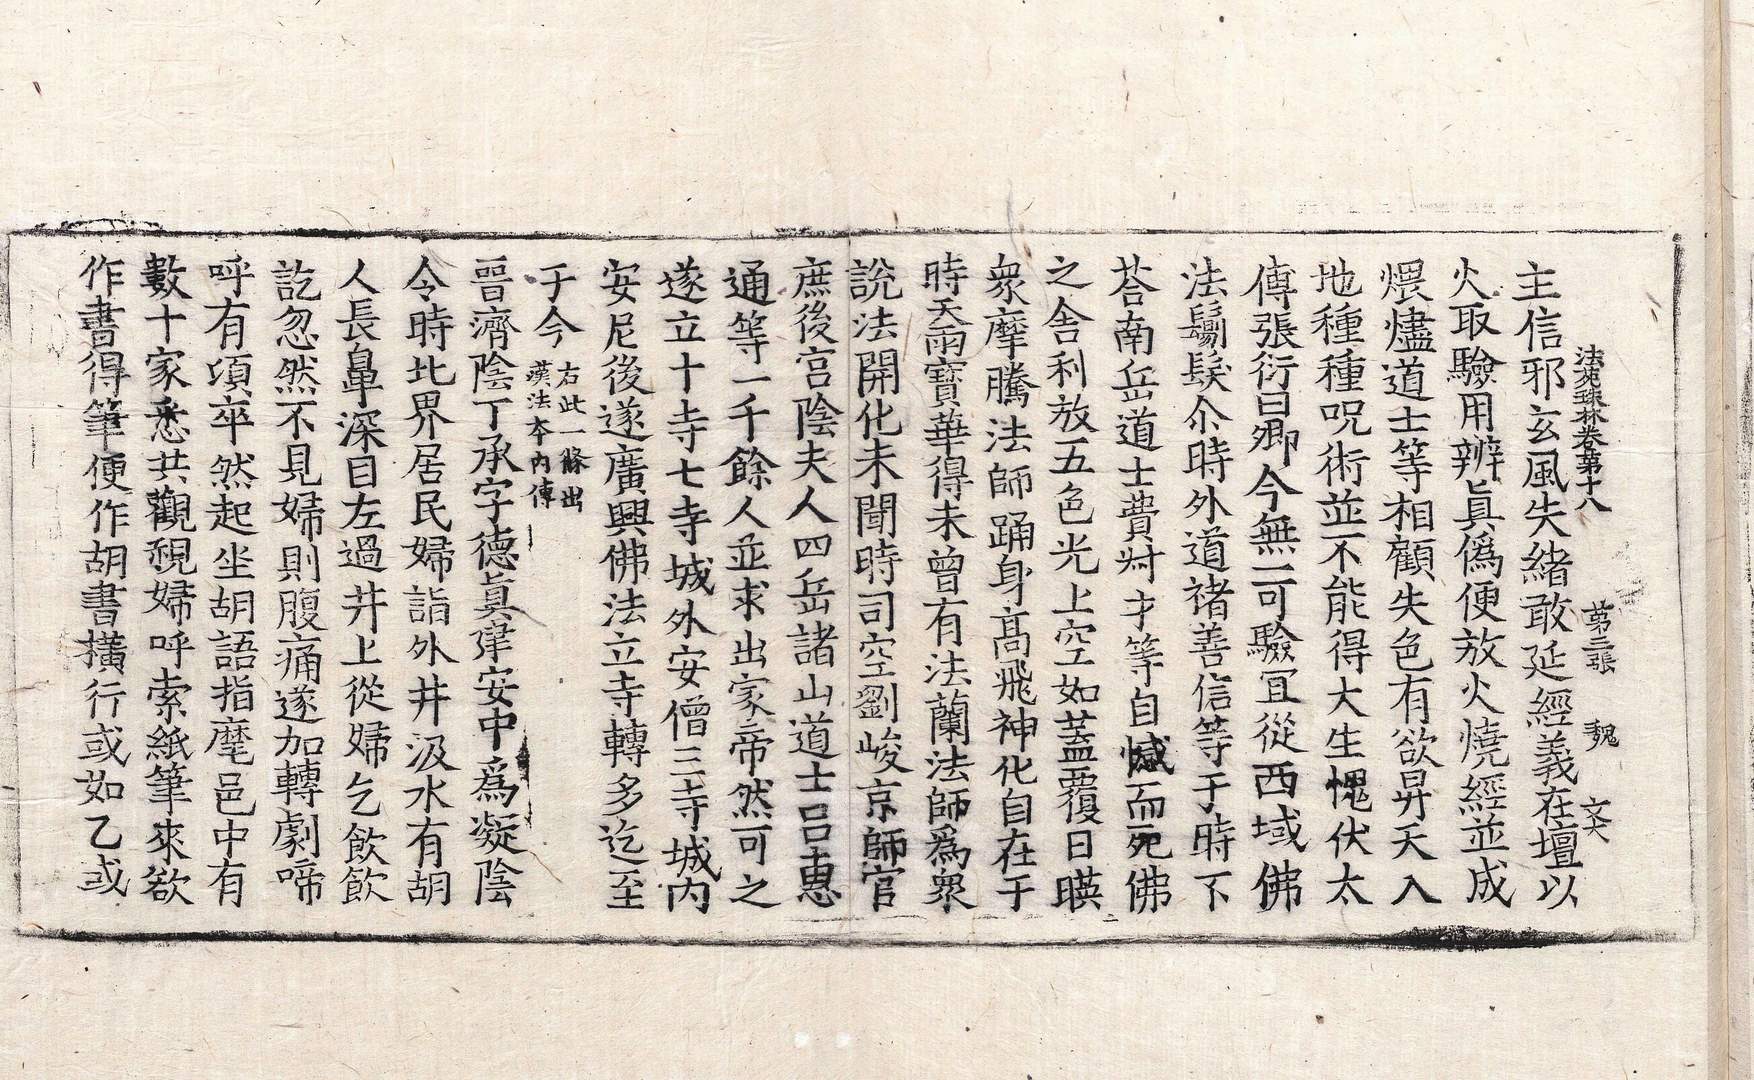 法苑珠林卷第十八　第三張　魏　文大
主信邪玄風失緒敢延經義在壇以
火取驗用辨眞僞便放火燒經並成
煨燼道士等相顧失色有欲昇天入
地種種呪術並不能得大生愧伏太
傅張衍曰卿今無一可驗冝從西域佛
法鬀髮尒時外道褚善信等于時下
荅南岳道士費才等自憾而死佛
之舎利放五色光上空如蓋覆日暎
衆摩騰法師踊身髙飛神化自在于
時天雨寶華得未曾有法蘭法師爲衆
說法開化未聞時司空劉峻京師官
庶後宫陰夫人四岳諸山道士吕惠
通等一千餘人並求出家帝然可之
遂立十寺七寺城外安僧三寺城内
安尼後遂廣興佛法立寺轉多迄至
于今右此一條出漢法本内傳
晉濟陰丁承字德眞建安中爲凝陰
令時北界居民婦詣外井汲水有胡
人長鼻深目左過井上從婦乞飲飲
訖忽然不見婦則腹痛遂加轉劇啼
呼有頃卒然起坐胡語指麾邑中有
數十家悉共觀視婦呼索紙筆來欲
作書得筆便作胡書橫行或如乙或